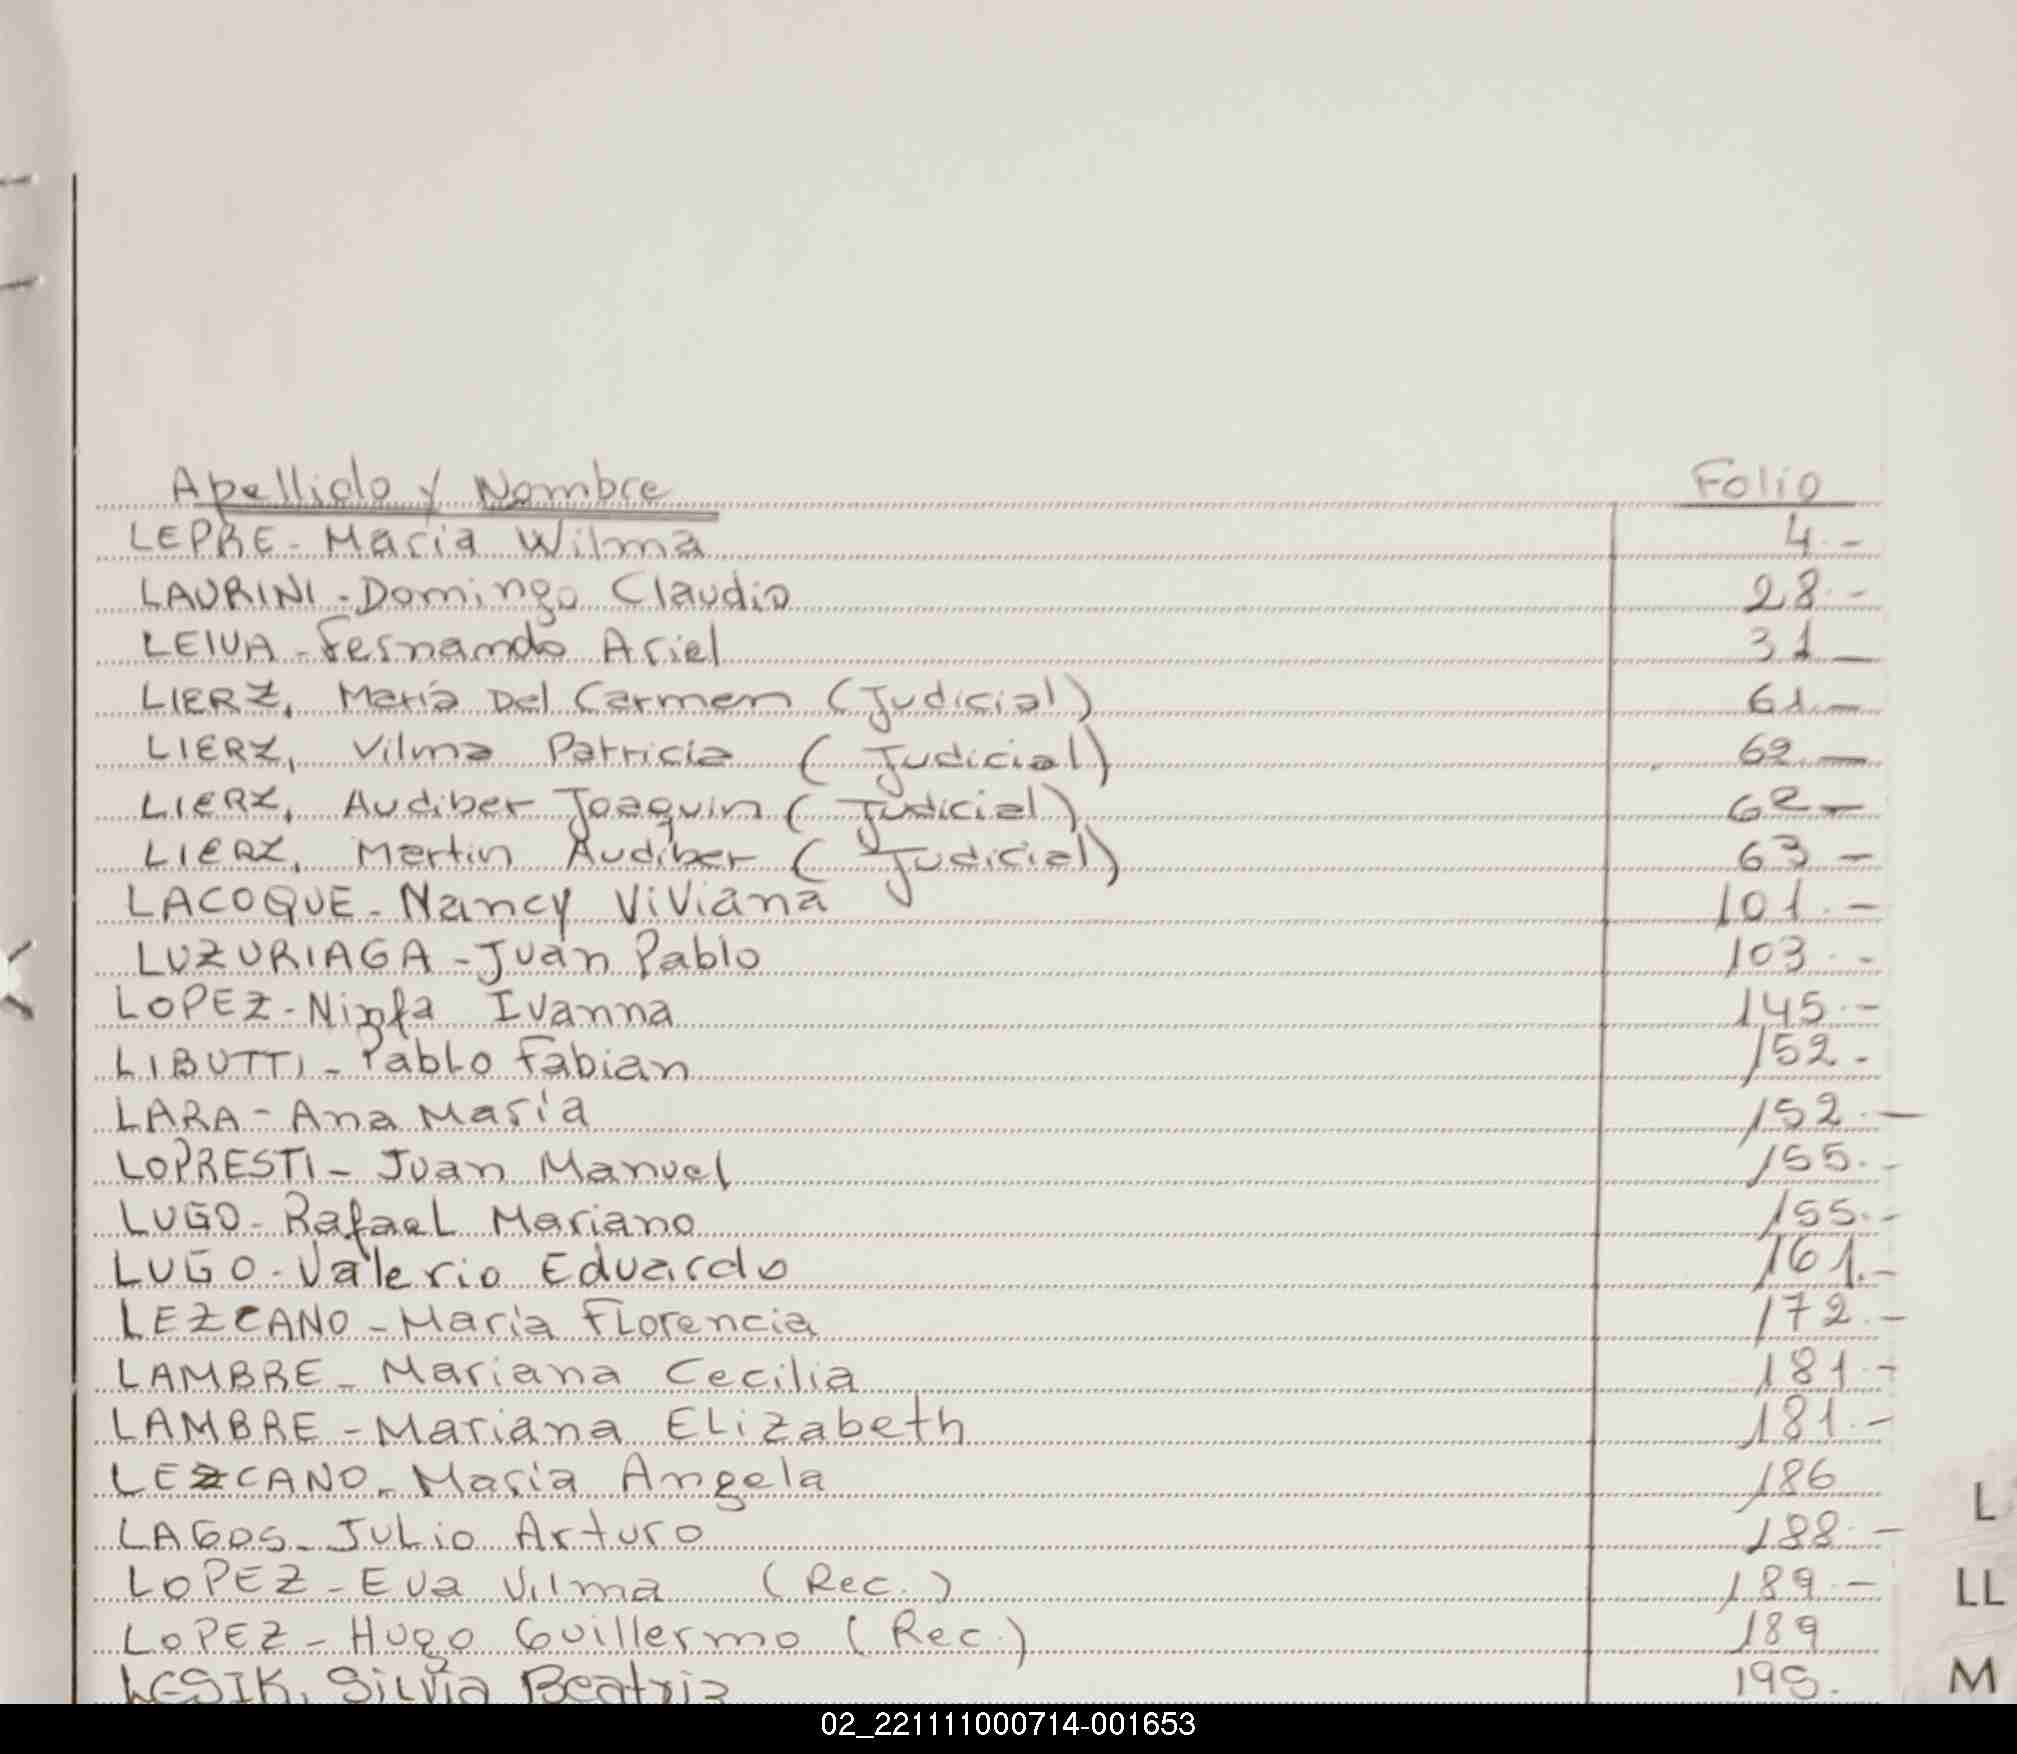 Apellido y Nombre Folio
LEPRE - Maria Wilma 4.-
LAURINI - Domingo Claudio 28.-
LEIVA - Fernando Ariel 31 -
LIERZ, María Del Carmen (Judicial) 61.-
LIERZ, Vilma Patricia (Judicial) 62.-
LIERZ, Audiber Joaquin (Judicial) 62 -
LIERZ, Martin Audiber (Judicial) 63 -
LACOQUE - Nancy Viviana 101.-
LUZURIAGA - Juan Pablo 103.-
LOPEZ - Ninfa Ivanna 145.-
LIBUTTI - Pablo Fabian 152.-
LARA - Ana María 152.-
LOPRESTI - Juan Manuel 155.-
LUGO - Rafael Mariano 155.-
LUGO - Valerio Eduardo 161.-
LEZCANO - María Florencia 172.-
LAMBRE - Mariana Cecilia 181.-
LAMBRE - Mariana Elizabeth 181.-
LEZCANO - María Angela 186
LAGOS - Julio Arturo 188.-
LOPEZ - Eva Vilma (Rec.) 189.-
LOPEZ - Hugo Guillermo (Rec.) 189
LESIK, Silvia Beatriz
L
LL
M
02_221111000714-001653